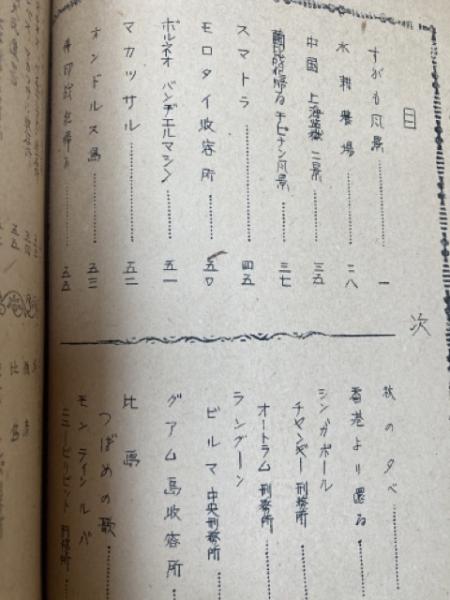 目次
すがも風景……一
水耕農場……二八
中国 上海監獄 二景……三五
蘭印戦犯帰る チピナン風景……三七
スマトラ……四五
モロタイ收容所……五〇
ボルネオ バンヂエルマシン……五一
マカッサル……五二
オンドルス島……五三
帰る……五五
秋の夕べ……
香港より還る……
シンガポール
チヤンギー刑務所……
オートラム刑務所……
ラングーン
ビルマ 中央刑務所……
グアム島收容所……
比島
つばめの歌……
モンテインルパ
ニユービリビット刑務所……